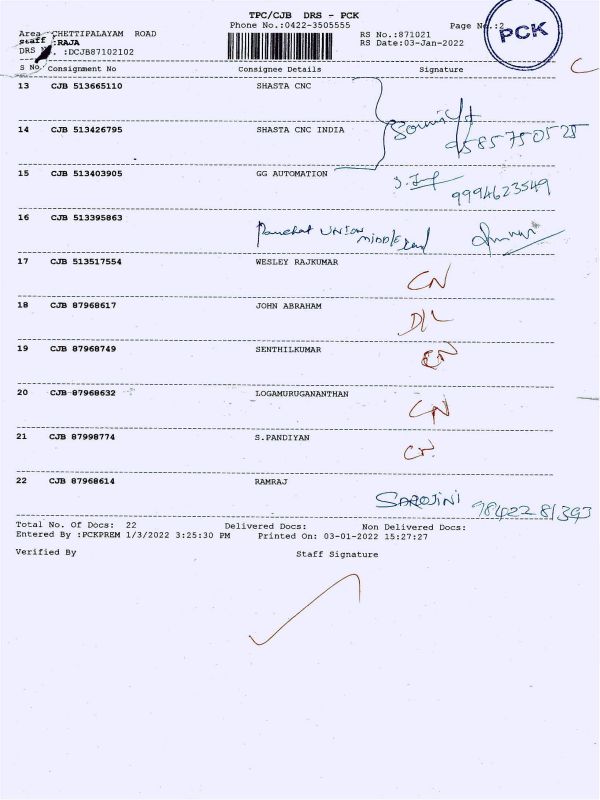 TPC/CJB DRS - PCK
Phone No.:0422-3505555
Page No.:2
PCK
Area CHETTIPALAYAM ROAD
Staff :RAJA
DRS :DCJB87102102
RS No.:871021
RS Date:03-Jan-2022
S No. Consignment No Consignee Details Signature
13 CJB 513665110 SHASTA CNC
14 CJB 513426795 SHASTA CNC INDIA
9585750525
15 CJB 513403905 GG AUTOMATION
9994623549
16 CJB 513395863
UNION MIDDLE
17 CJB 513517554 WESLEY RAJKUMAR
CN
18 CJB 87968617 JOHN ABRAHAM
D/L
19 CJB 87968749 SENTHILKUMAR
CN
20 CJB 87968632 LOGAMURUGANANTHAN
CN
21 CJB 87998774 S.PANDIYAN
22 CJB 87968614 RAMRAJ
SAROJINI 9842281393
Total No. Of Docs: 22 Delivered Docs: Non Delivered Docs:
Entered By :PCKPREM 1/3/2022 3:25:30 PM Printed On: 03-01-2022 15:27:27
Verified By Staff Signature